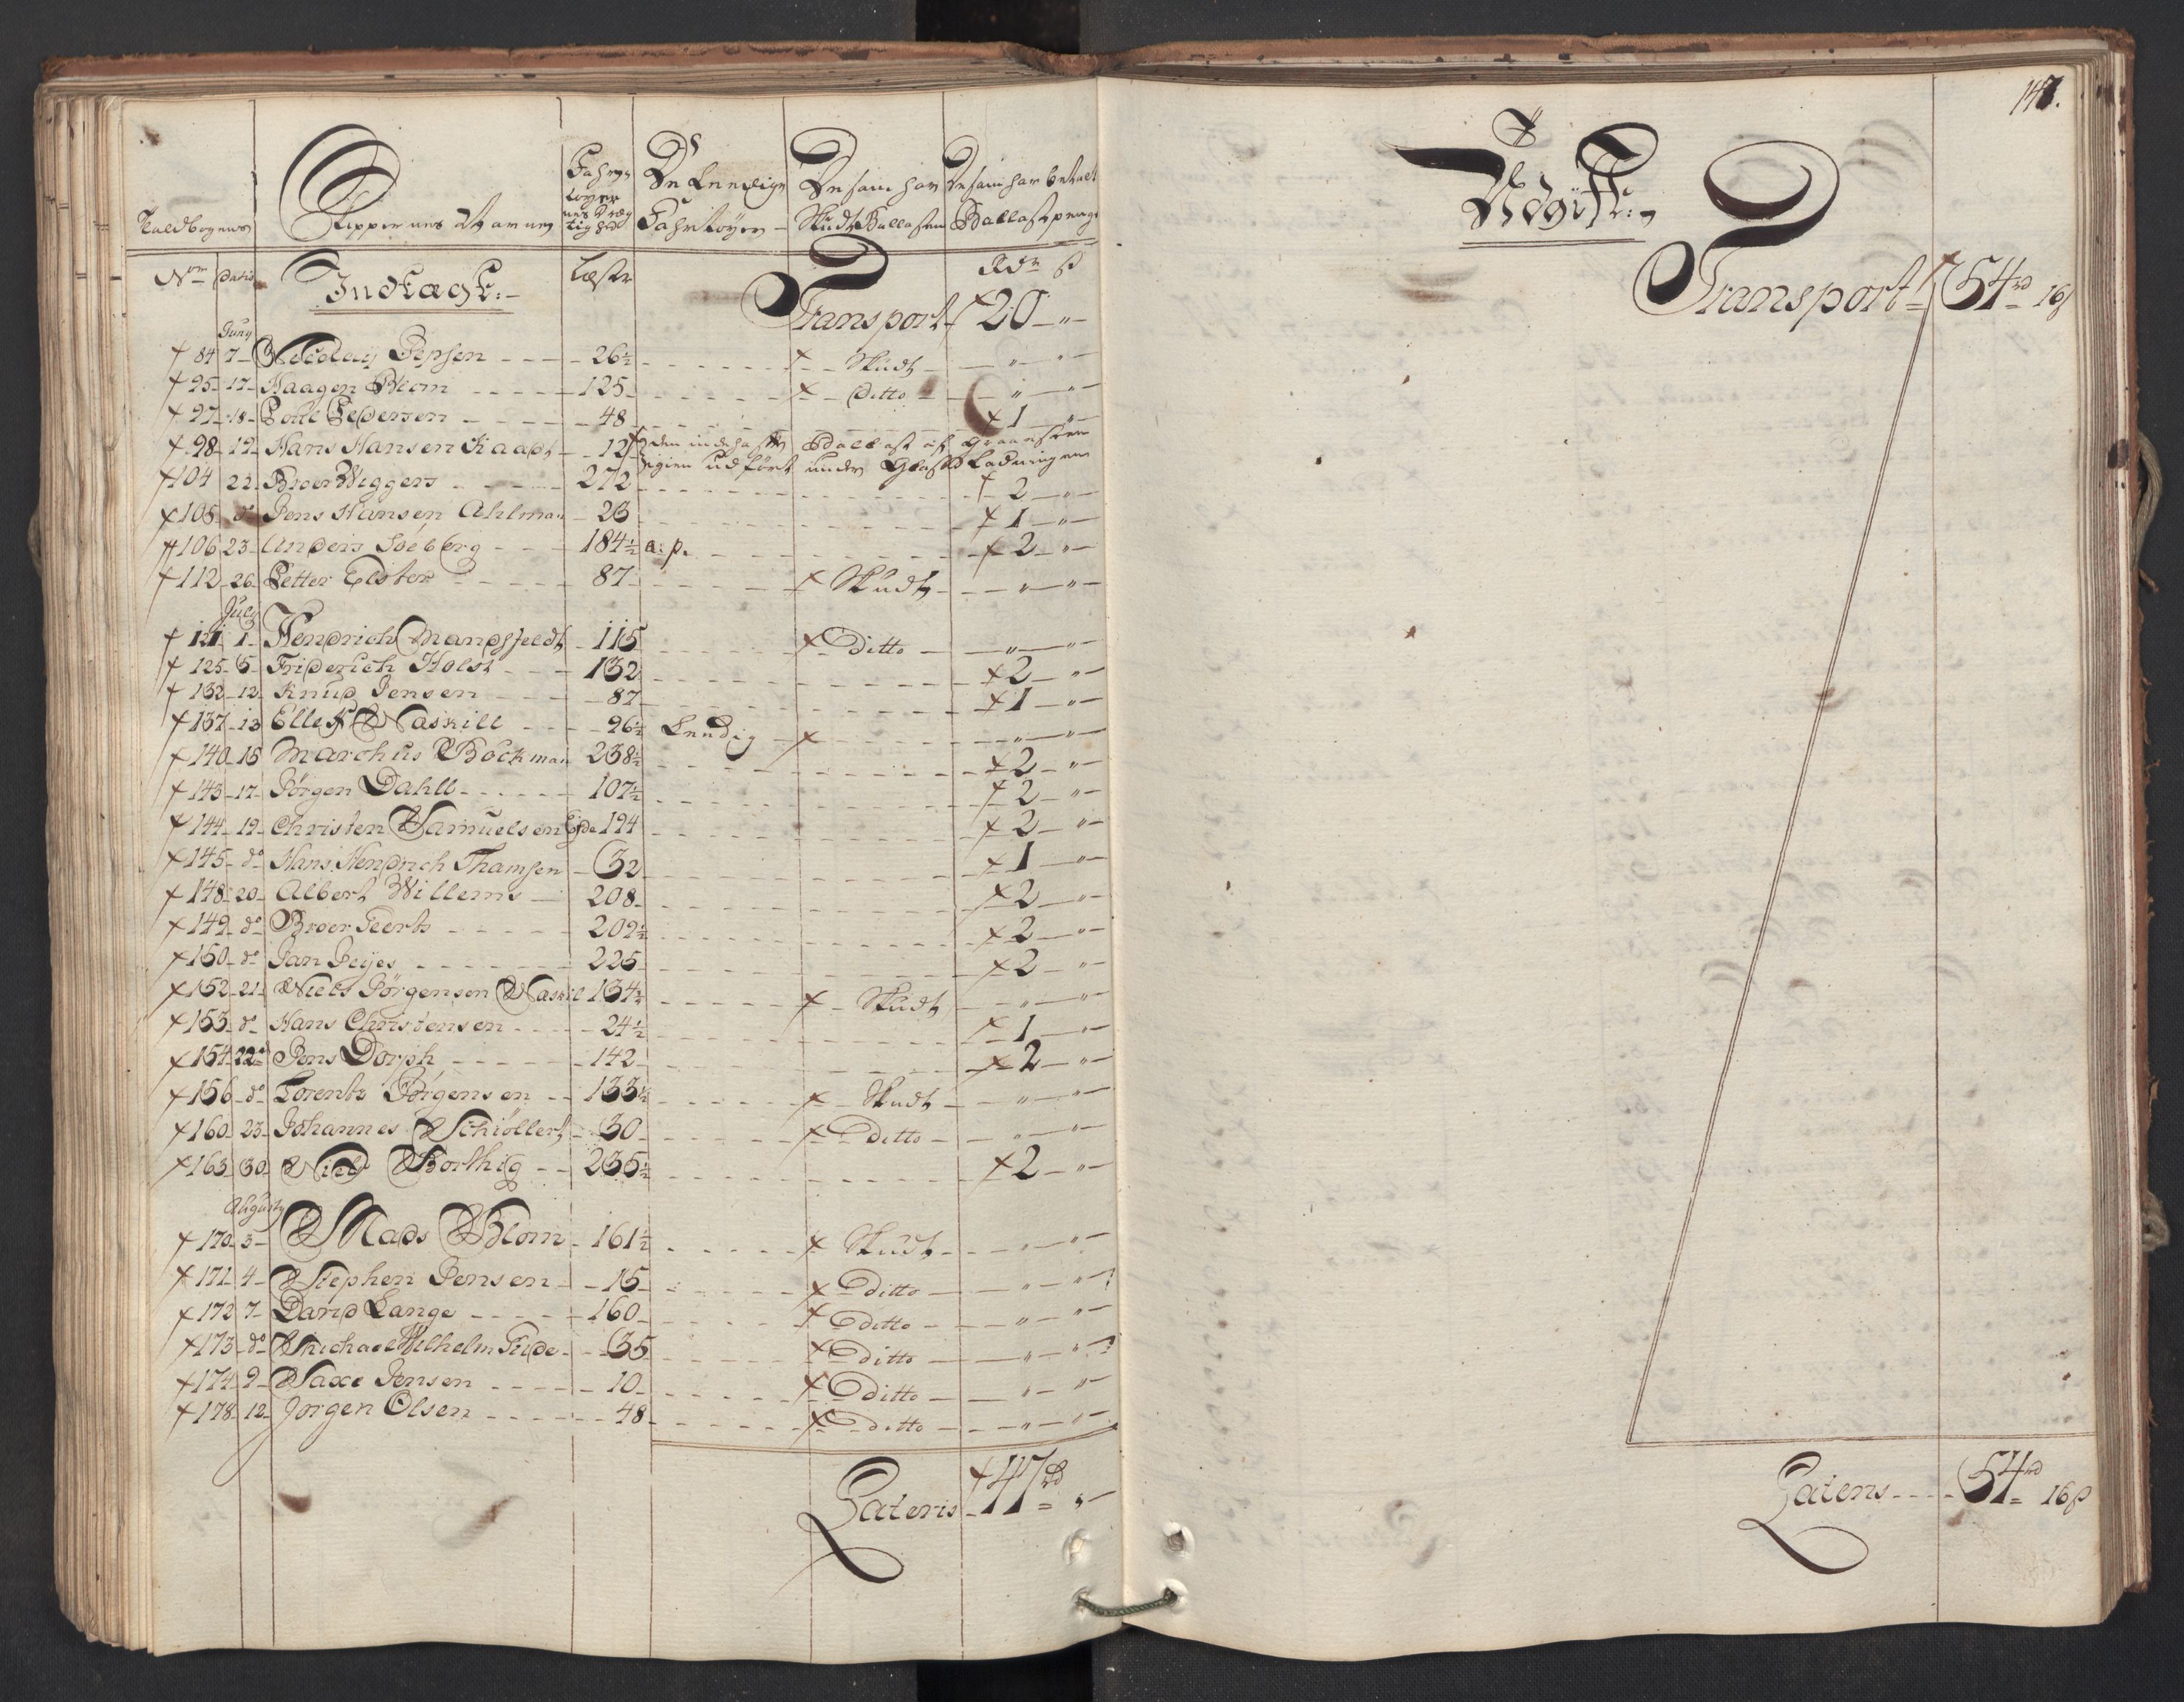 Toldbogens
Skippernes Navne
Fahrtøyernes Drægtighed
De Leedige Fahrtøyer
De som har Skudt Ballasten
De som har betalt Ballastpenge
No Dato Indtægt:
Læster
Rdr ß
Transport 20 — " —
Juny
84 7 Nicolay Jepsen 26½ Skudt — " — " —
95 17 Haagen Blom 125 ditto — " — " —
97 18 Poul Pedersen 48 1 — " —
98 19 Hans Hansen Kaadt 12 den indehafte Ballast af Graasteen
igien udført under Glas Ladningen
104 22 Broer Wiggers 272 2 — " —
105 do Jens Hansen Ahlman 23 1 — " —
106 23 Anders Soeberg 184½ a: p. 2 — " —
112 26 Petter Elster 87 Skudt — " — " —
July
121 1 Hendrich Mandsfeldt 115 Ditto — " — " —
125 5 Friderich Holst 132 2 — " —
132 12 Knud Jensen 87 1 — " —
137 13 Ellef Naskill 96½ Leedig — " — " —
140 15 Marchus Böckman 238½ 2 — " —
143 17 Jørgen Dahll 107½ 2 — " —
144 19 Christen Samuelsen Eyde 194 2 — " —
145 do Hans Hendrich Thamsen 32 1 — " —
148 20 Albert Willems 208 2 — " —
149 do Broer Geerts 209½ 2 — " —
150 do Jan Feijes 225 2 — " —
152 21 Niels Jørgensen Naskil 134½ Skudt — " — " —
153 do Hans Christensen 24½ 1 — " —
154 22 Jens Dorph 142 2 — " —
156 do Lorentz Jörgensen 133½ Skudt — " — " —
160 23 Johannes Schiöllert 30 Ditto — " — " —
163 30 Niels Borthig 235½ 2 — " —
Augusty
170 3 Mads Blom 161½ Skudt — " — " —
171 4 Stephen Jensen 15 Ditto — " — " —
172 7 David Lange 160 Ditto — " — " —
173 do Michael Wilhelm Gude 35 Ditto — " — " —
174 9 Saxe Jensen 10 Ditto — " — " —
178 12 Jørgen Olsen 48 Ditto — " — " —
Lateris 47rd " —
147.
Udgift:
Transport 54rd 16ß
Lateris 54rd 16ß